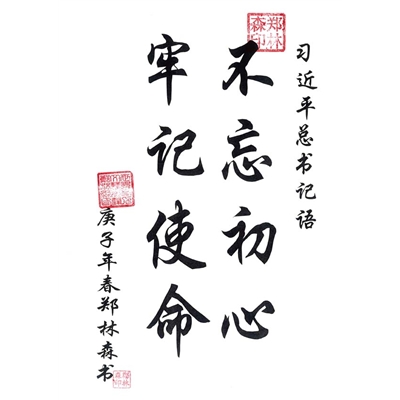 习近平总书记语
不忘初心
牢记使命
庚子年春郑林森书